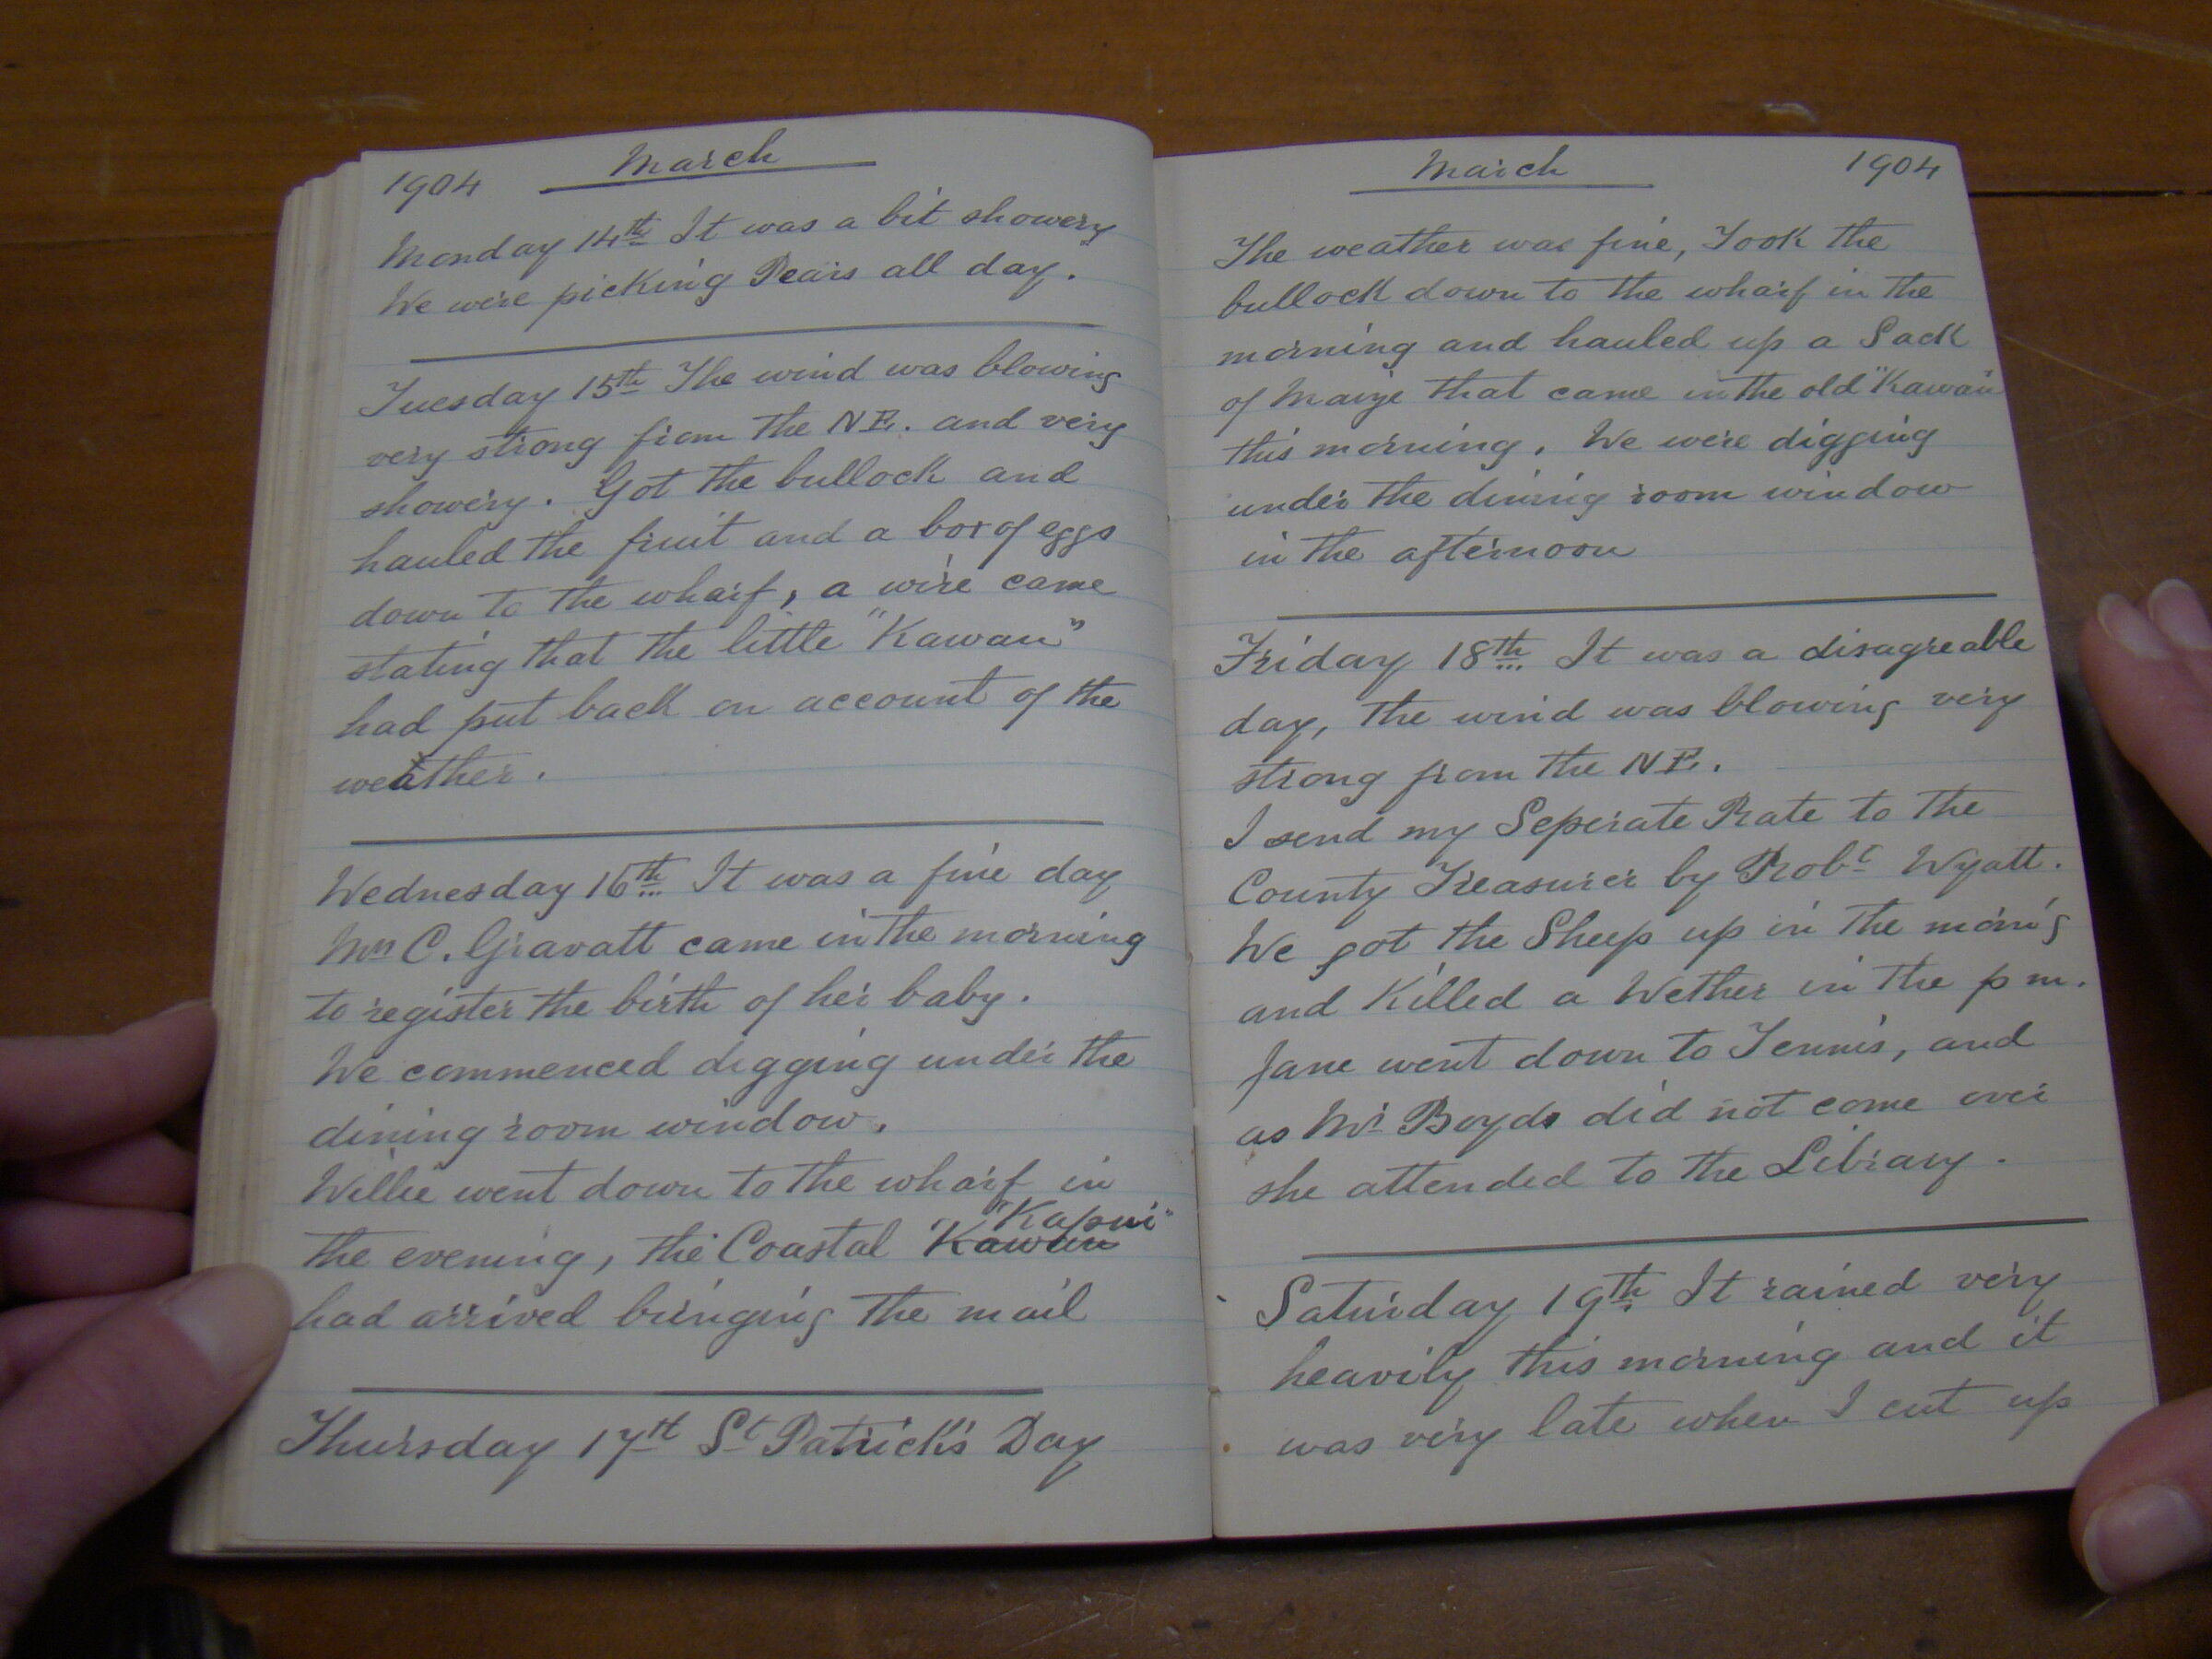 1904 March
Monday 14th It was a bit showery
We were picking Pears all day.
Tuesday 15th The wind was blowing
very strong from the NE. and very
showery. Got the bullock and
hauled the fruit and a box of eggs
down to the wharf, a wire came
stating that the little "Kawau"
had put back on account of the
weather.
Wednesday 16th It was a fine day
Mrs C. Gravatt came in the morning
to register the birth of her baby.
We commenced digging under the
dining room window.
Willie went down to the wharf in
the evening, the Coastal "Kawau "Kapui"
had arrived bringing the mail
Thursday 17th St Patrick's Day
March 1904
The weather was fine, Took the
bullock down to the wharf in the
morning and hauled up a Sack
of Maize that came in the old "Kawau
this morning. We were digging
under the dining room window
in the afternoon
Friday 18th It was a disagreable
day, the wind was blowing very
strong from the NE.
I send my Seperate Rate to the
County Treasurer by Robt Wyatt.
We got the Sheep up in the morn'g
and Killed a Wether in the p m.
Jane went down to Tennis, and
as Mr Boyds did not come over
she attended to the Library.
Saturday 19th It rained very
heavily this morning and it
was very late when I cut up